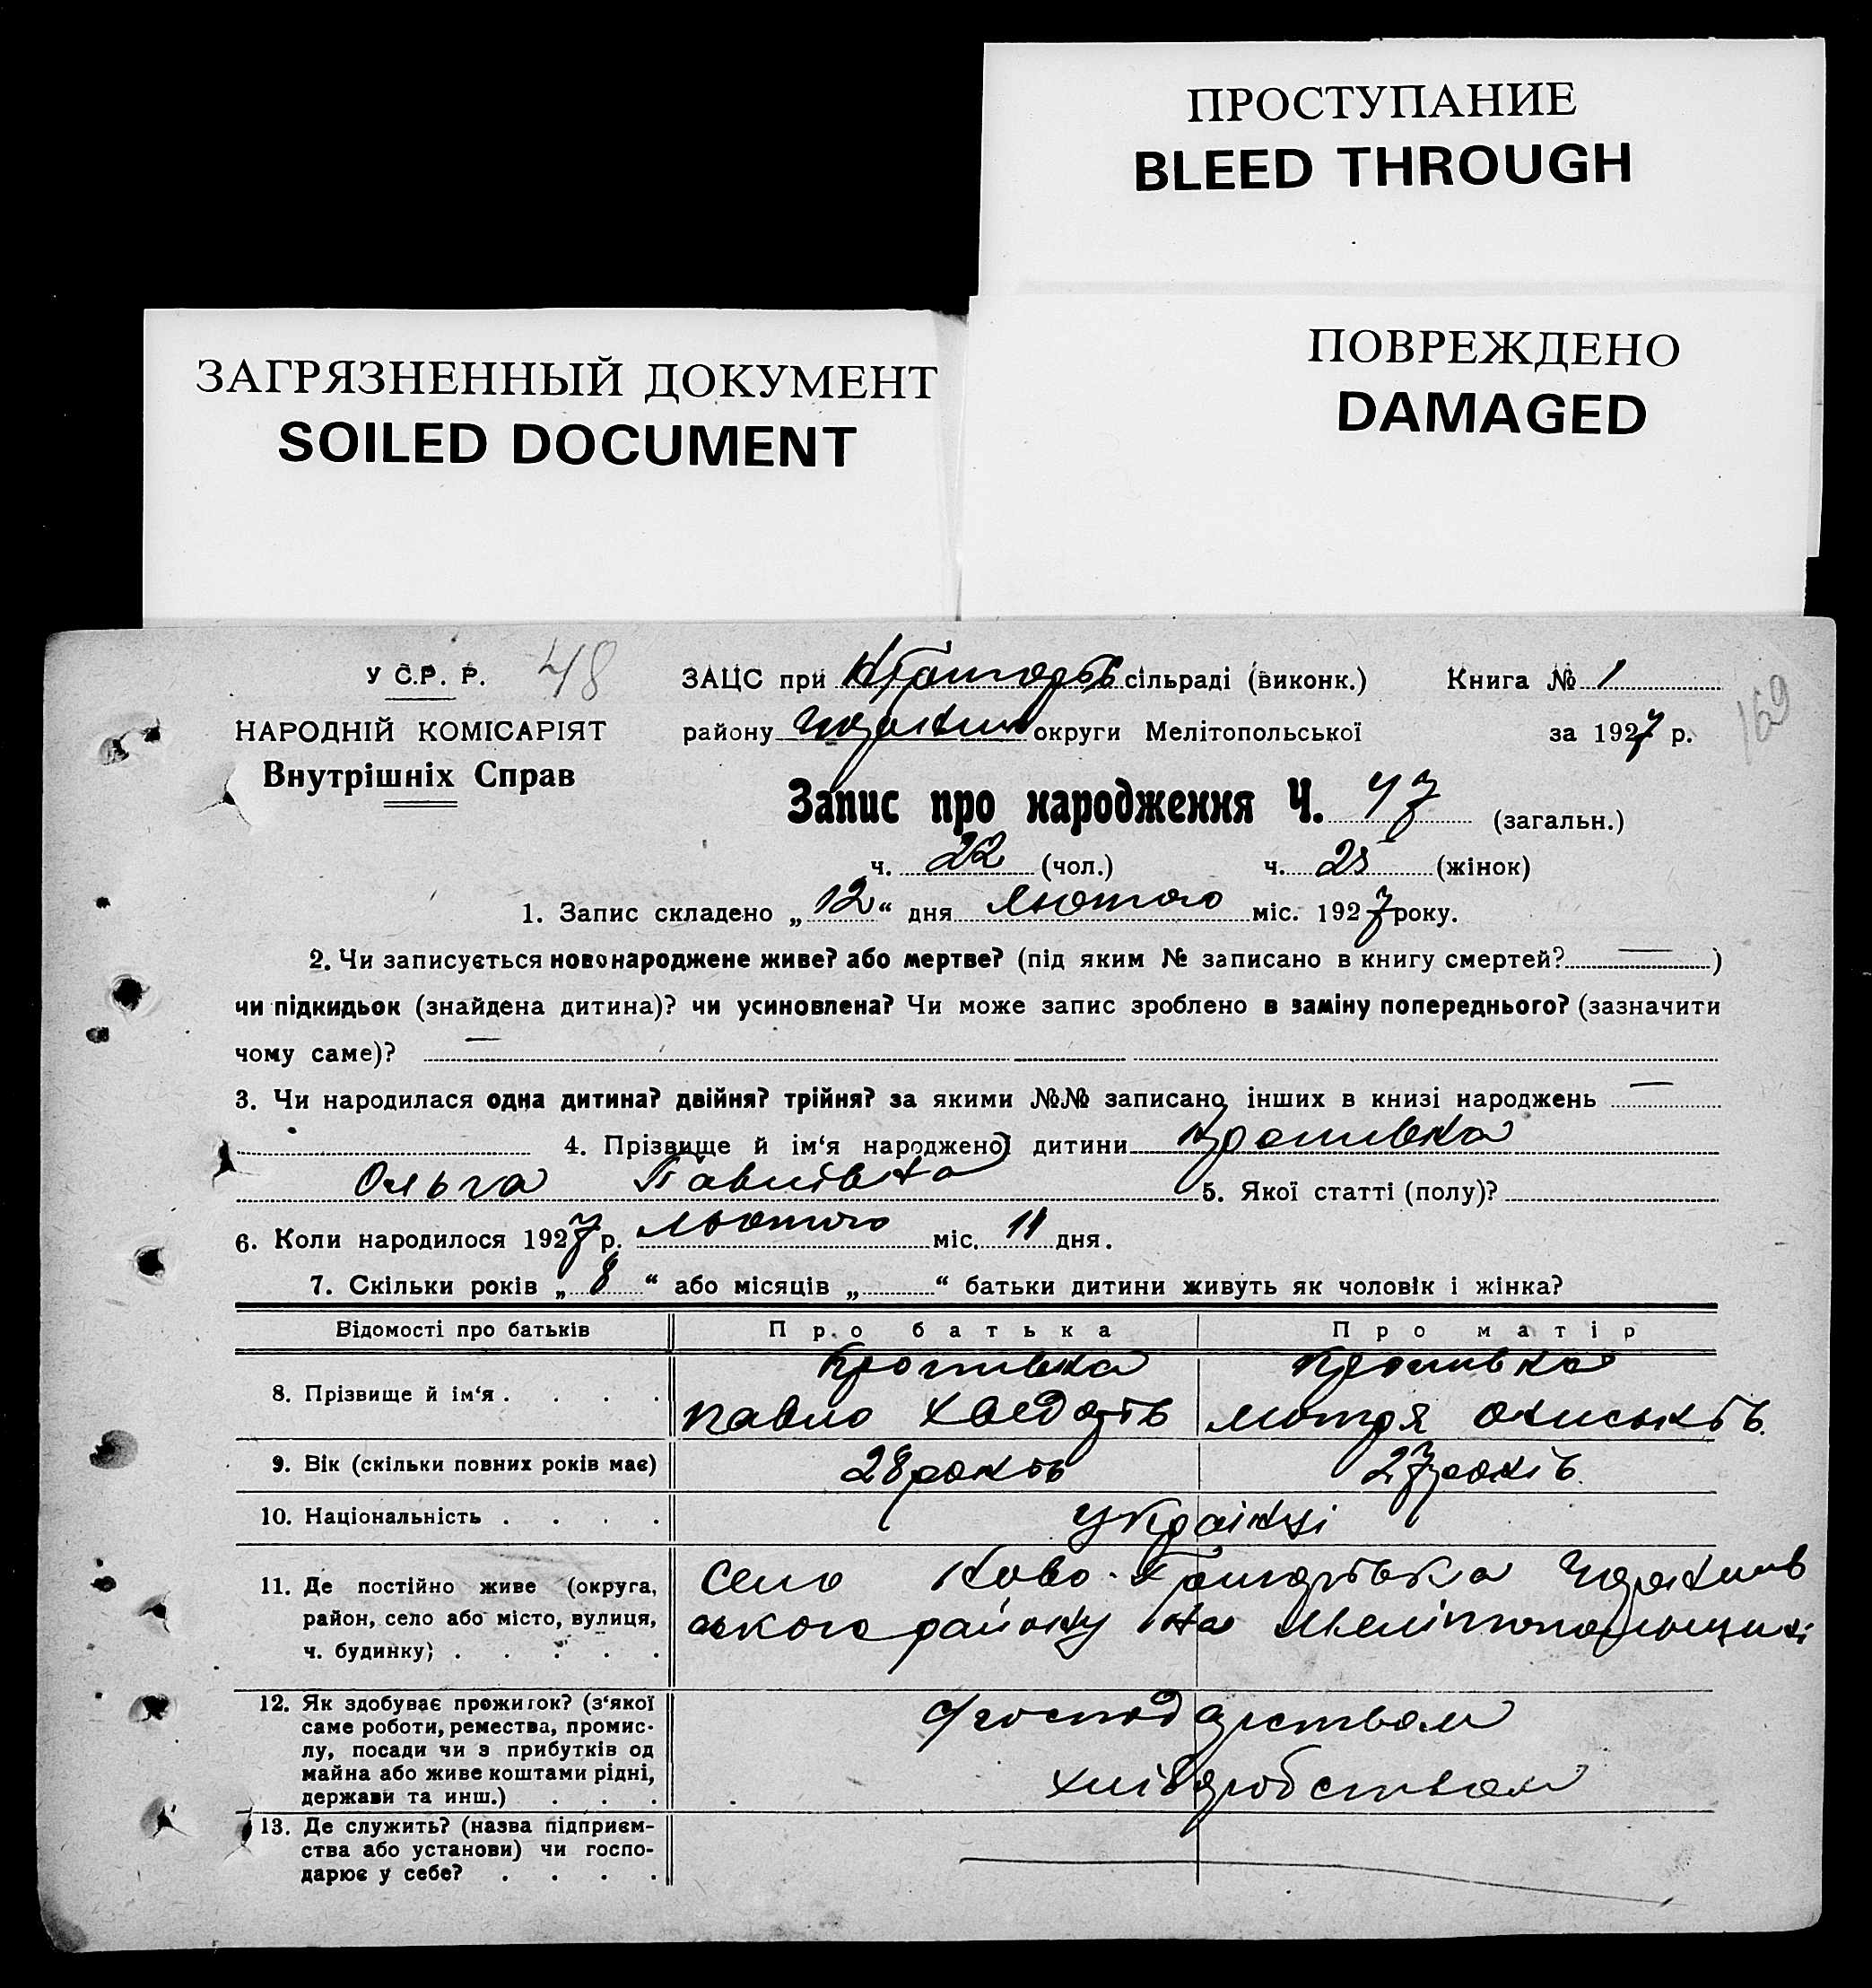 ПРОСТУПАНИЕ
BLEED THROUGH
ПОВРЕЖДЕНО
DAMAGED
ЗАГРЯЗНЕННЫЙ ДОКУМЕНТ
SOILED DOCUMENT
У С.Р. Р. 48 ЗАЦС при сільраді (виконк.) Книга № 1
169
НАРОДНІЙ КОМІСАРІЯТ району округи Мелітопольської за 1927 р.
Внутрішніх Справ
Запис про народження Ч. 47 (загальн.)
ч. 22 (чол.) ч. 25 (жінок)
1. Запис складено „ 12 “ дня Лютого міс. 1927 року.
2. Чи записується новонароджене живе? або мертве? (під яким № записано в книгу смертей? — )
чи підкидьок (знайдена дитина)? чи усиновлена? Чи може запис зроблено в заміну попереднього? (зазначити
чому саме)? —
3. Чи народилася одна дитина? двійня? трійня? за якими №№ записано інших в книзі народжень —
4. Прізвище й ім‘я народженої дитини Кропивка
Ольга Павлівна 5. Якої статті (полу)?
6. Коли народилося 1927 р. Лютого міс. 11 дня.
7. Скільки років „ 8 “ або місяців „ “ батьки дитини живуть як чоловік і жінка?
Відомості про батьків Про батька Про матір
8. Прізвище й ім‘я . . . . Кропивка Кропивка
Павло Хведорів Мотря
9. Вік (скільки повних років має) 28 років 27 років.
10. Національність . . . . Українці
11. Де постійно живе (округа, район, село або місто, вулиця, ч. будинку) . . . . .
село Ново-
ського району на Мелітопольщині
12. Як здобуває прожиток? (з‘якої саме роботи, ремества, промислу, посади чи з прибутків од майна або живе коштами рідні, держави та инш.) . . .
господарством
хліборобством
13. Де служить? (назва підприємства або установи) чи господарює у себе? . . . .